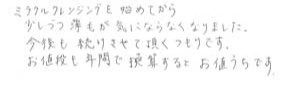 ミラクルクレンジングを始めてから
少しづつ薄毛が気にならなくなりました。
今後も続けさせて頂くつもりです。
お値段も年間で換算するとお値うちです。